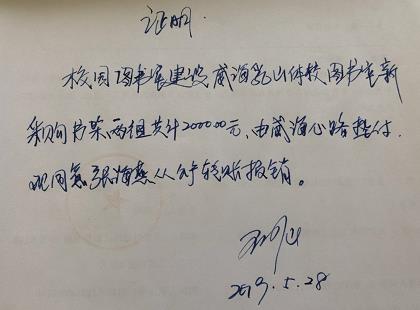 证明.
校园图书展建设威海乳山体校图书室新
采购书架两组共计2000.00元,由威海心路垫付.
现同意张海燕从公户转账报销。
2019.5.28